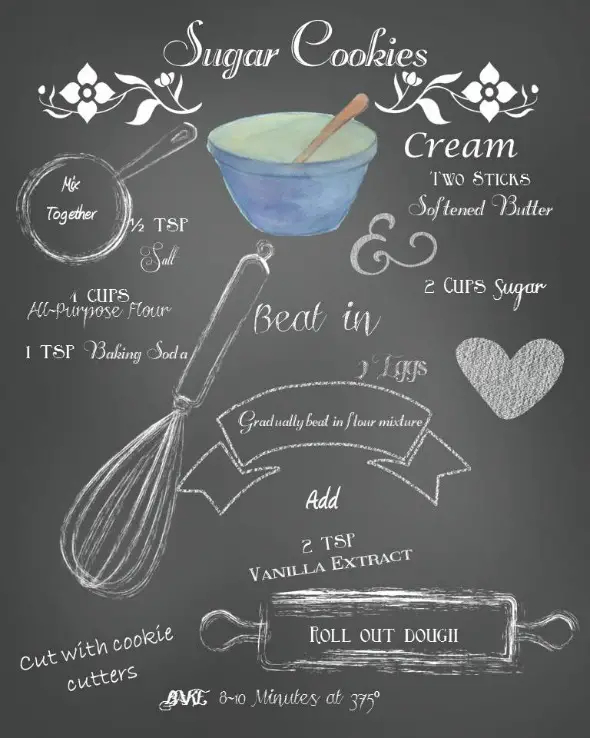 Sugar Cookies
Cream
Two Sticks
Softened Butter
&
2 Cups Sugar
Mix
Together
½ TSP
Salt
CUPS
All-Purpose Flour
1 TSP Baking Soda
Beat in
Eggs
Gradually beat in flour mixture
Add
2 TSP
Vanilla Extract
Roll out dough
Cut with cookie
cutters
BAKE 8-10 Minutes at 375°